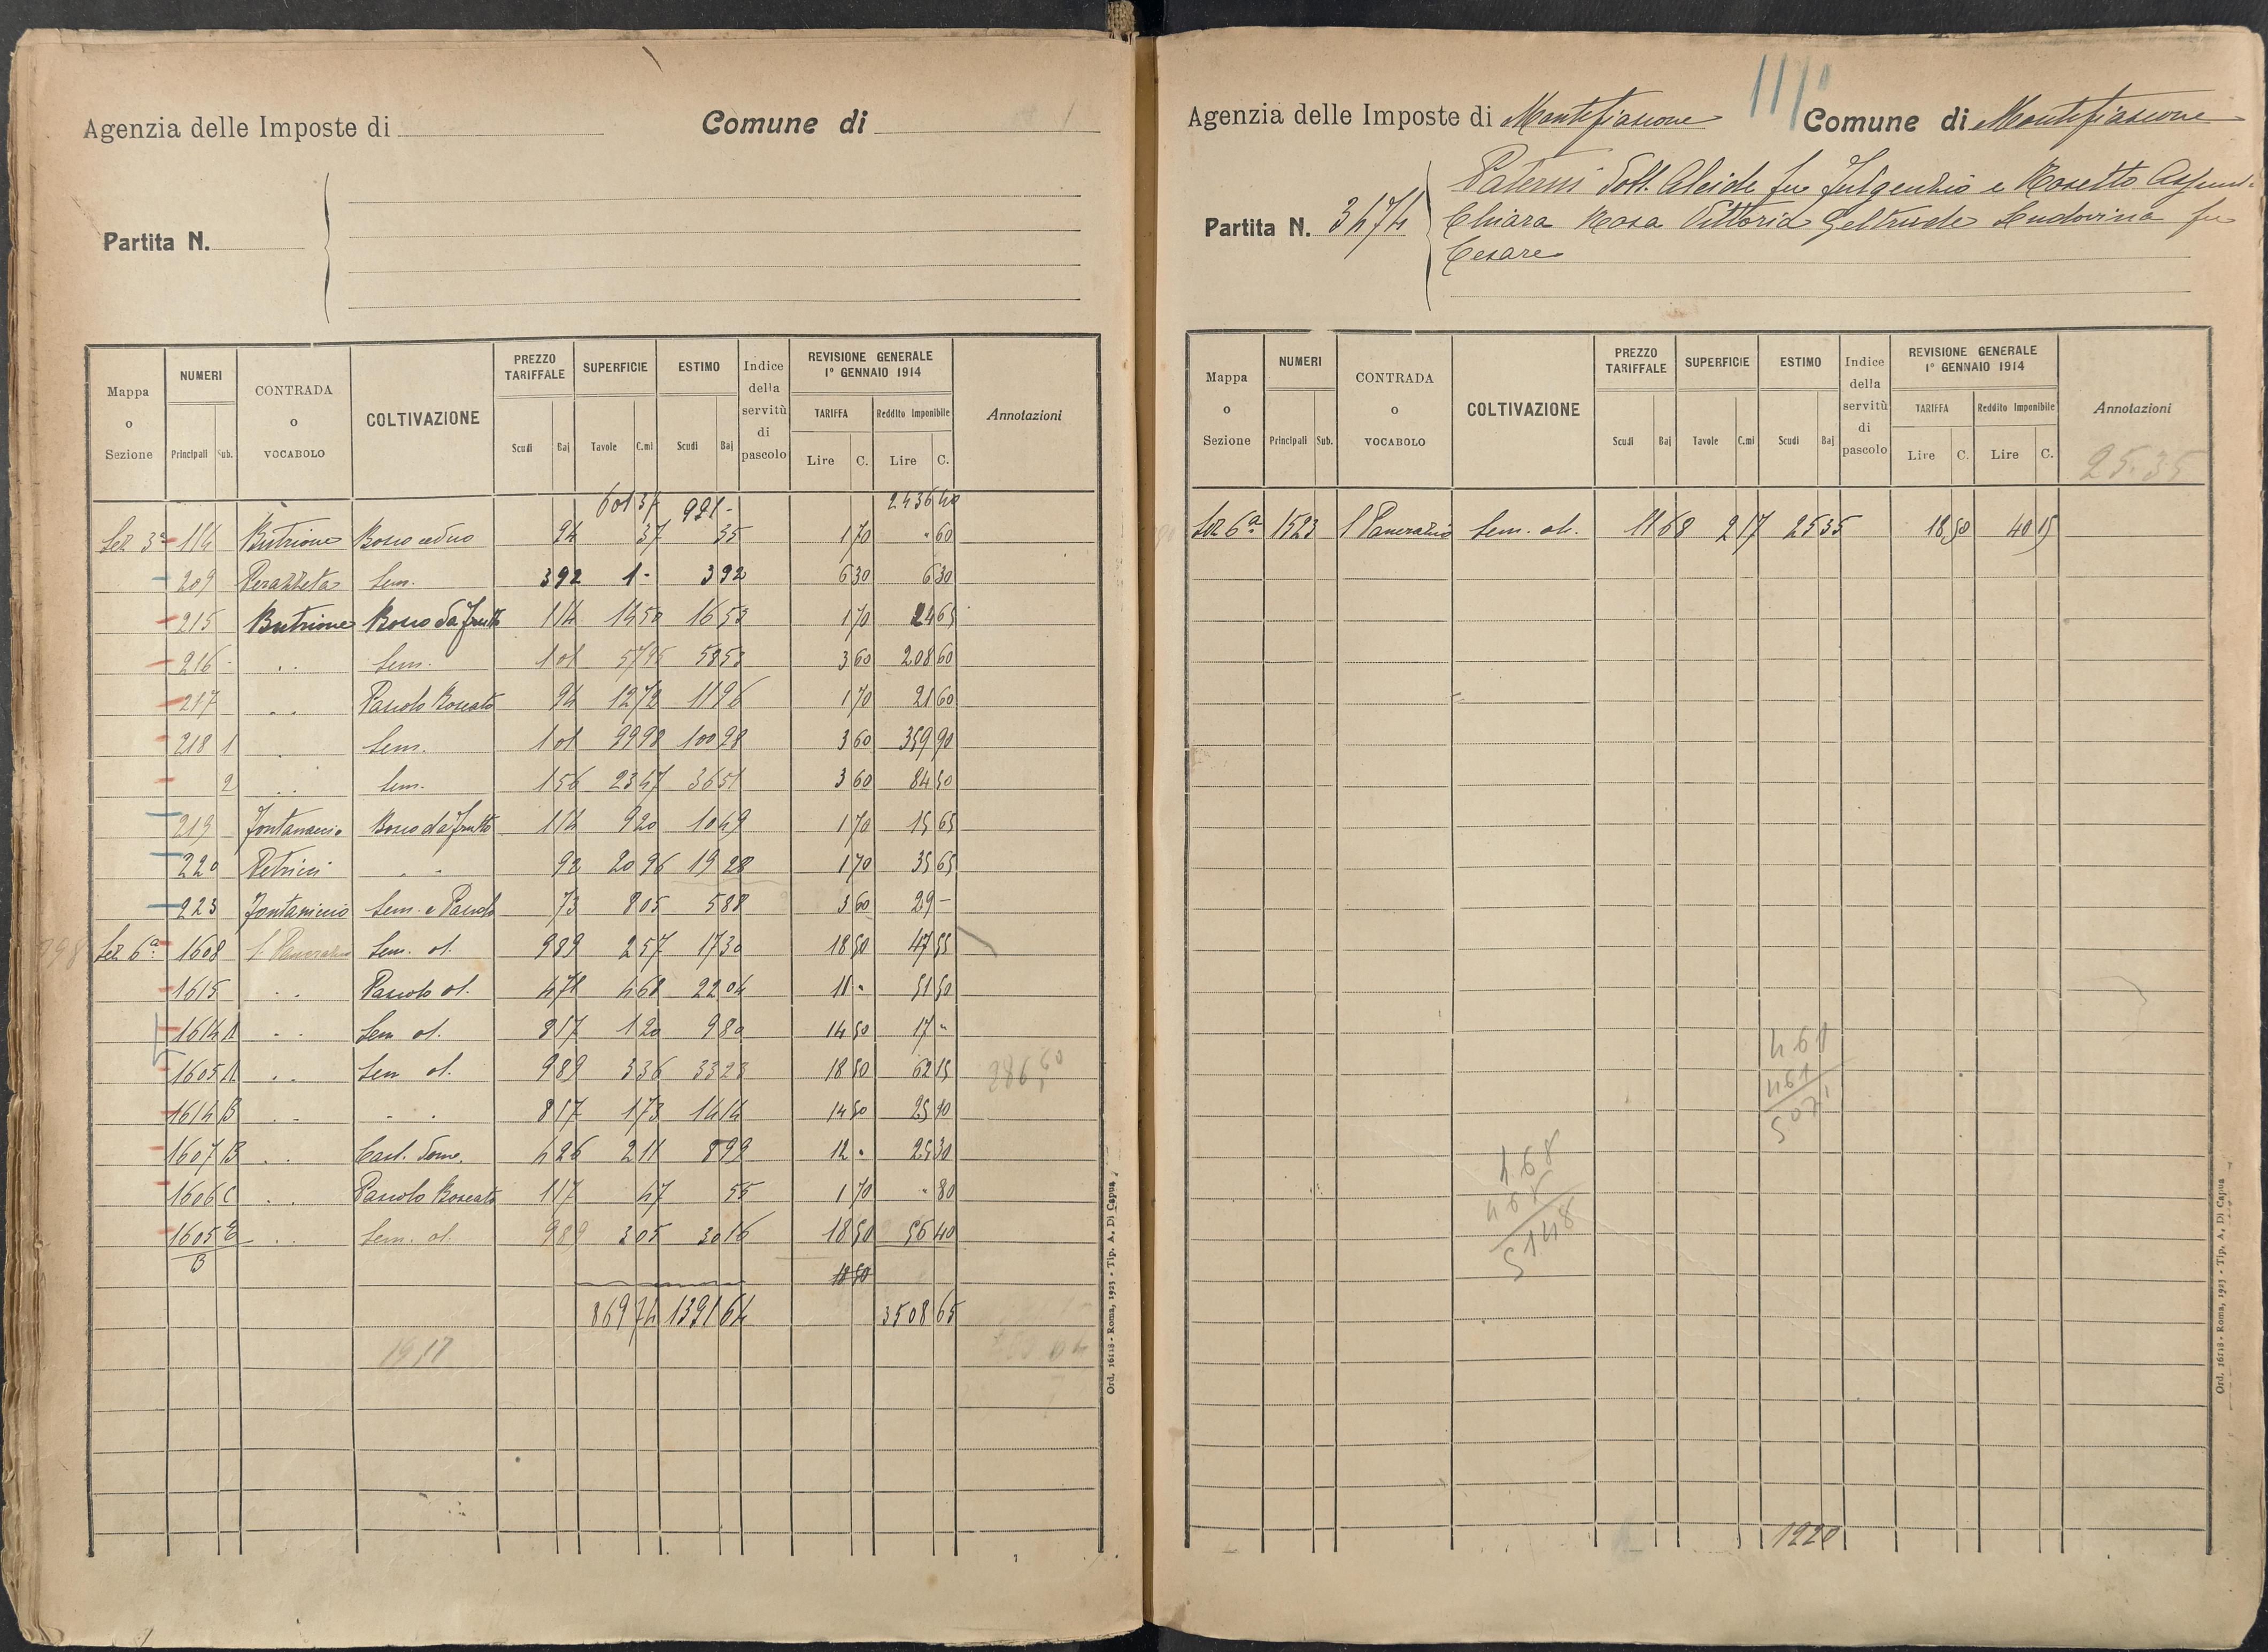 Agenzia delle Imposte di
Comune di
Partita N.
Mappa o Sezione | NUMERI Principali Sub. | CONTRADA o VOCABOLO | COLTIVAZIONE | PREZZO TARIFFALE Scudi Baj | SUPERFICIE Tavole C.mi | ESTIMO Scudi Baj | Indice della servitù di pascolo | REVISIONE GENERALE 1° GENNAIO 1914 TARIFFA Lire C. Reddito Imponibile Lire C. | Annotazioni
601 37 921 - 2436 40
Sez 3ª 114 Butrione Bosco ceduo 94 37 35 1 70 " 60
209 Perazzeta Sem. 3 92 1 - 3 92 6 30 6 30
215 Butrione Bosco da frutto 1 14 14 50 16 53 1 70 24 65
216 " " Sem. 1 01 57 95 58 53 3 60 208 60
217 " " Pascolo Boscato 94 12 72 11 96 1 70 21 60
218 1 " Sem. 1 01 99 98 100 98 3 60 359 90
2 " " Sem. 1 56 23 47 36 51 3 60 84 50
219 Fontanaccio Bosco da frutto 1 14 9 20 10 49 1 70 15 65
220 Petricci " " 92 20 96 19 28 1 70 35 65
223 Fontaniccio Sem. e Pascolo 73 8 05 5 88 3 60 29 -
Sez 6ª 1608 S. Pancrazio Sem. ol. 9 89 2 57 17 30 18 50 47 55
1615 " " Pascolo ol. 4 71 4 68 22 04 11 " 51 50
1614 A " " Sem ol. 8 17 1 20 9 80 14 50 17 "
1605 A " " Sem ol. 9 89 3 36 33 23 18 50 62 15
1614 B " " " " 8 17 1 73 14 14 14 50 25 10
1607 B " " Cast. dome. 4 26 2 11 8 99 12 " 25 30
1606 C " " Pascolo Boscato 1 17 47 55 1 70 " 80
1605 E " " Sem. ol. 9 89 3 05 30 16 18 50 56 40
B
18 50
869 74 1391 64 3508 65
Ord. 16118 - Roma, 1923 - Tip. A. Di Capua
Agenzia delle Imposte di Montefiascone
Comune di Montefiascone
Partita N. 3474
Paterni Dott. Alcide fu Fulgenzio e Rosetto Assunt.
Chiara Rosa Vittoria Geltrude Ludovina fu
Cesare
Mappa o Sezione | NUMERI Principali Sub. | CONTRADA o VOCABOLO | COLTIVAZIONE | PREZZO TARIFFALE Scudi Baj | SUPERFICIE Tavole C.mi | ESTIMO Scudi Baj | Indice della servitù di pascolo | REVISIONE GENERALE 1° GENNAIO 1914 TARIFFA Lire C. Reddito Imponibile Lire C. | Annotazioni
25.35
Sez 6ª 1523 S Pancrazio Sem. ol. 11 68 2 17 25 35 18 50 40 15
461
461
5071
468
468
5148
1220
Ord. 16118 - Roma, 1923 - Tip. A. Di Capua